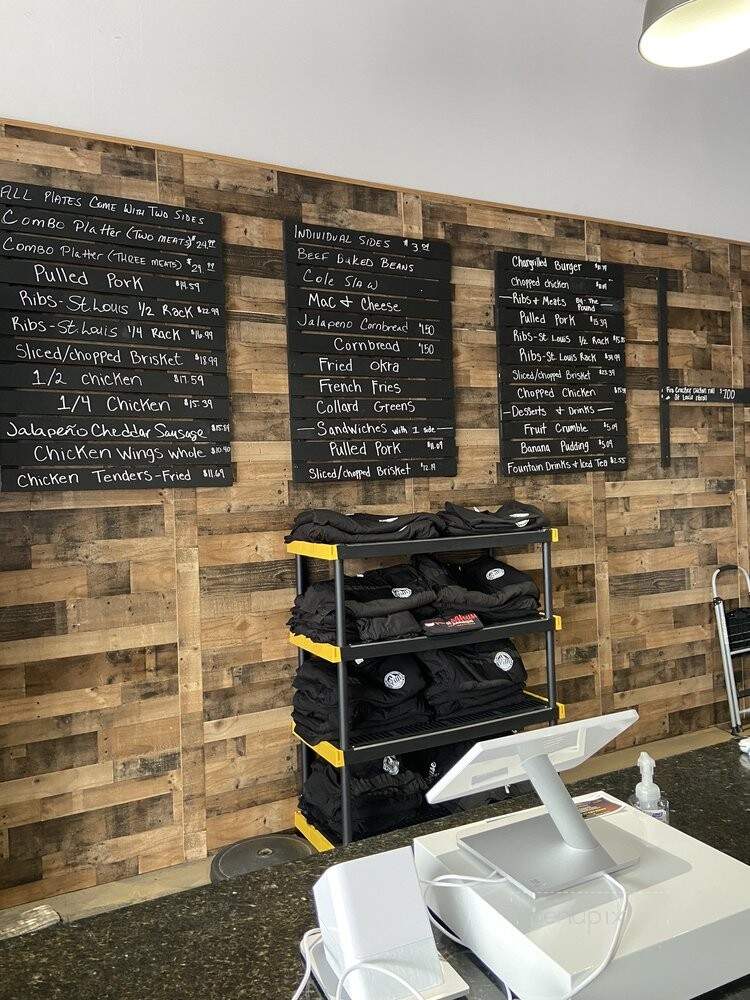 ALL PLATES COME WITH TWO SIDES
COMBO Platter (TWO MEATS) $24.99
COMBO Platter (THREE MEATS) $29.99
Pulled Pork $14.59
Ribs-St.Louis 1/2 Rack $22.99
Ribs-St.Louis 1/4 Rack $16.99
Sliced/chopped Brisket $18.99
1/2 chicken $17.59
1/4 Chicken $15.39
Jalapeño Cheddar Sausage
Chicken Wings whole $10.90
Chicken Tenders-Fried $11.69
INDIVIDUAL SIDES $3
BEEF BAKED BEANS
Cole Slaw
Mac & Cheese
Jalapeno Cornbread $1.50
Cornbread $1.50
Fried Okra
French Fries
Collard Greens
Sandwiches with 1 side
Pulled Pork
Sliced/chopped Brisket
Chargrilled Burger
Chopped chicken
Ribs & Meats By-The Pound
Pulled Pork $15.39
Ribs-St Louis 1/2 Rack
Ribs-St Louis Rack
Sliced/chopped Brisket
Chopped Chicken
Desserts & Drinks
Fruit Crumble $5.09
Banana Pudding $5.09
Fountain Drinks & Iced Tea $2.55